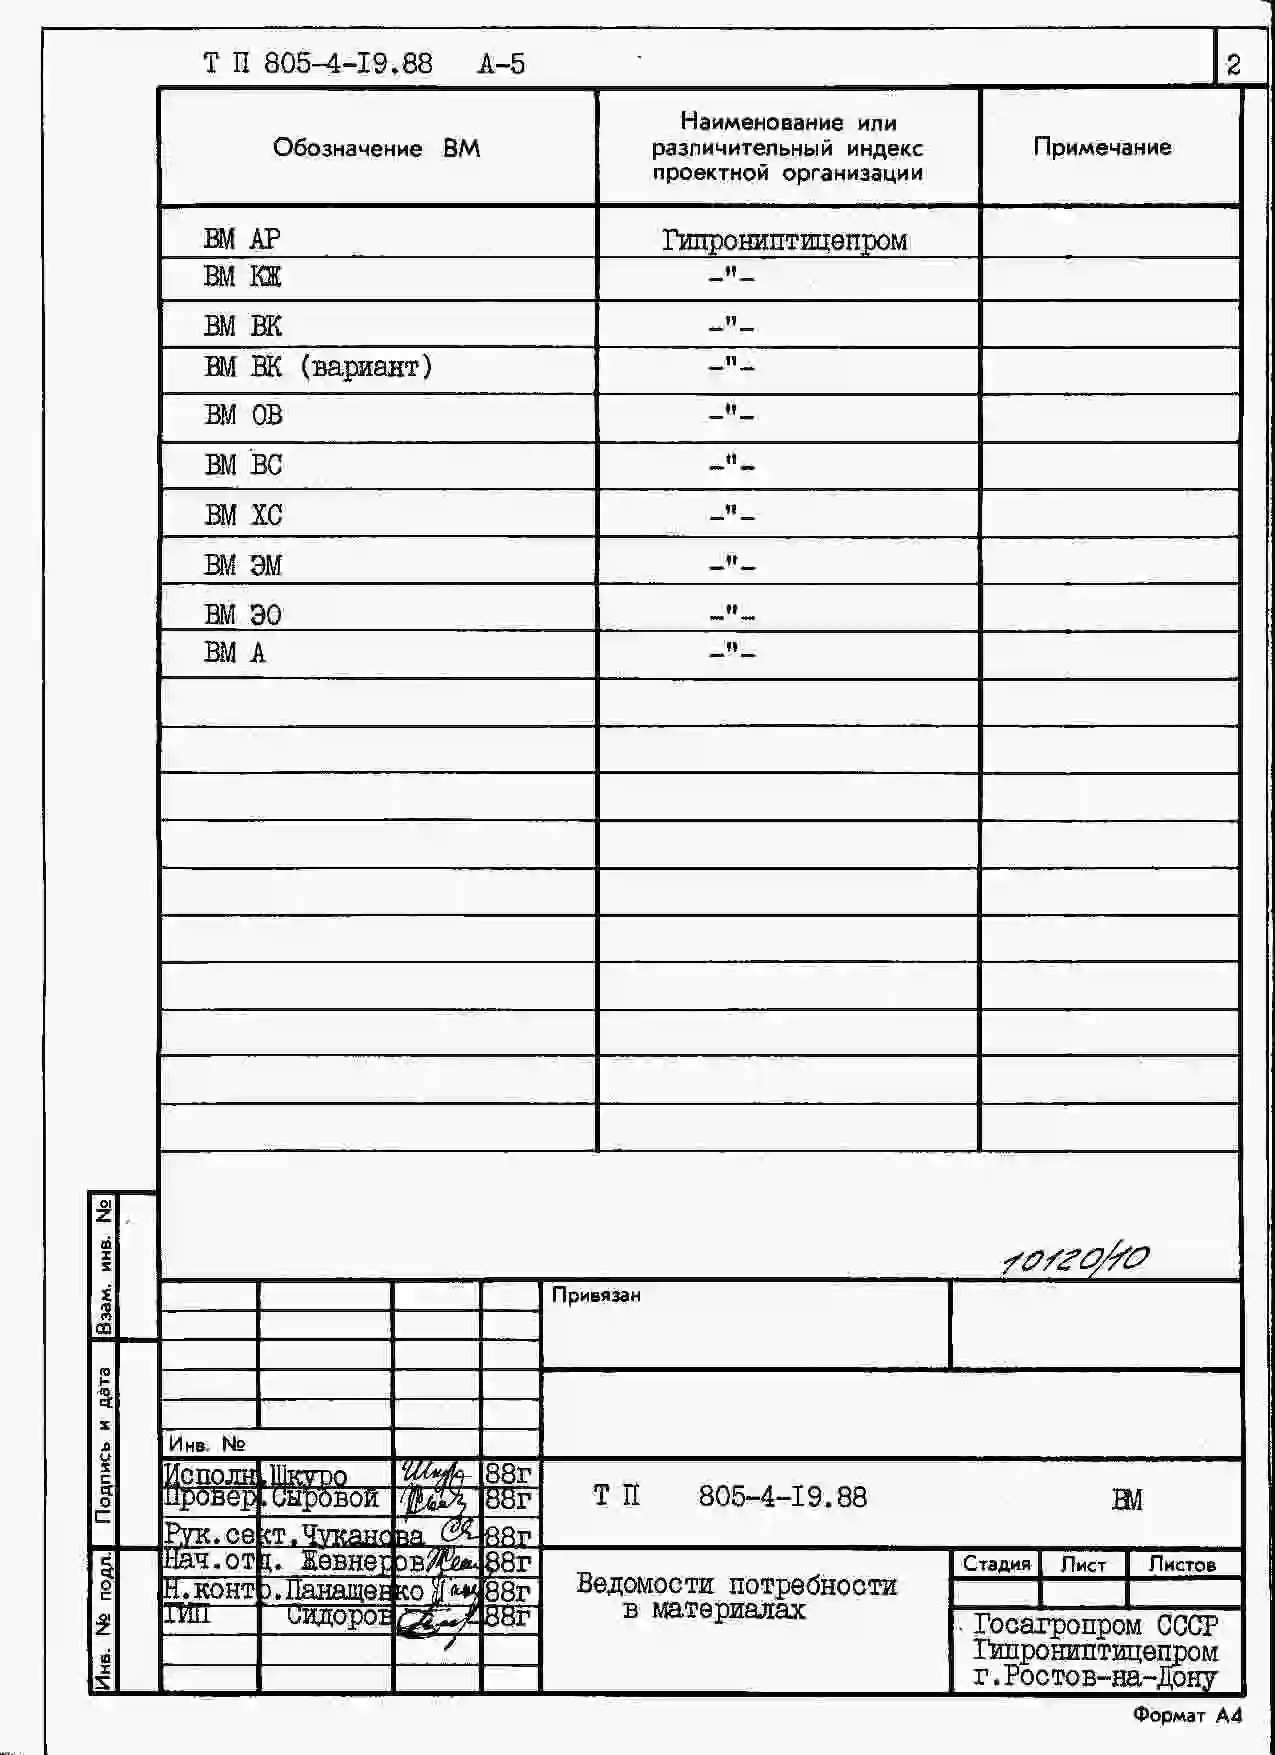 Т П 805-4-I9.88 А-5
2
Обозначение ВМ
Наименование или
различительный индекс
проектной организации
Примечание
ВМ АР Гипрониптицепром
ВМ КЖ -"-
ВМ ВК -"-
ВМ ВК (вариант) -"-
ВМ ОВ -"-
ВМ ВС -"-
ВМ ХС -"-
ВМ ЭМ -"-
ВМ ЭО -"-
ВМ А -"-
10120/10
Привязан
Взам. инв. №
Подпись и дата
Инв. № подл.
Инв. №
Исполн. Шкуро 88г
Провер. Сыровой 88г
Рук.сект. Чуканова 88г
Нач.отд. Жевнеров 88г
Н.контр. Панащенко 88г
ГИП Сидоров 88г
Т П 805-4-I9.88 ВМ
Ведомости потребности
в материалах
Стадия Лист Листов
Госагропром СССР
Гипрониптицепром
г.Ростов-на-Дону
Формат А4